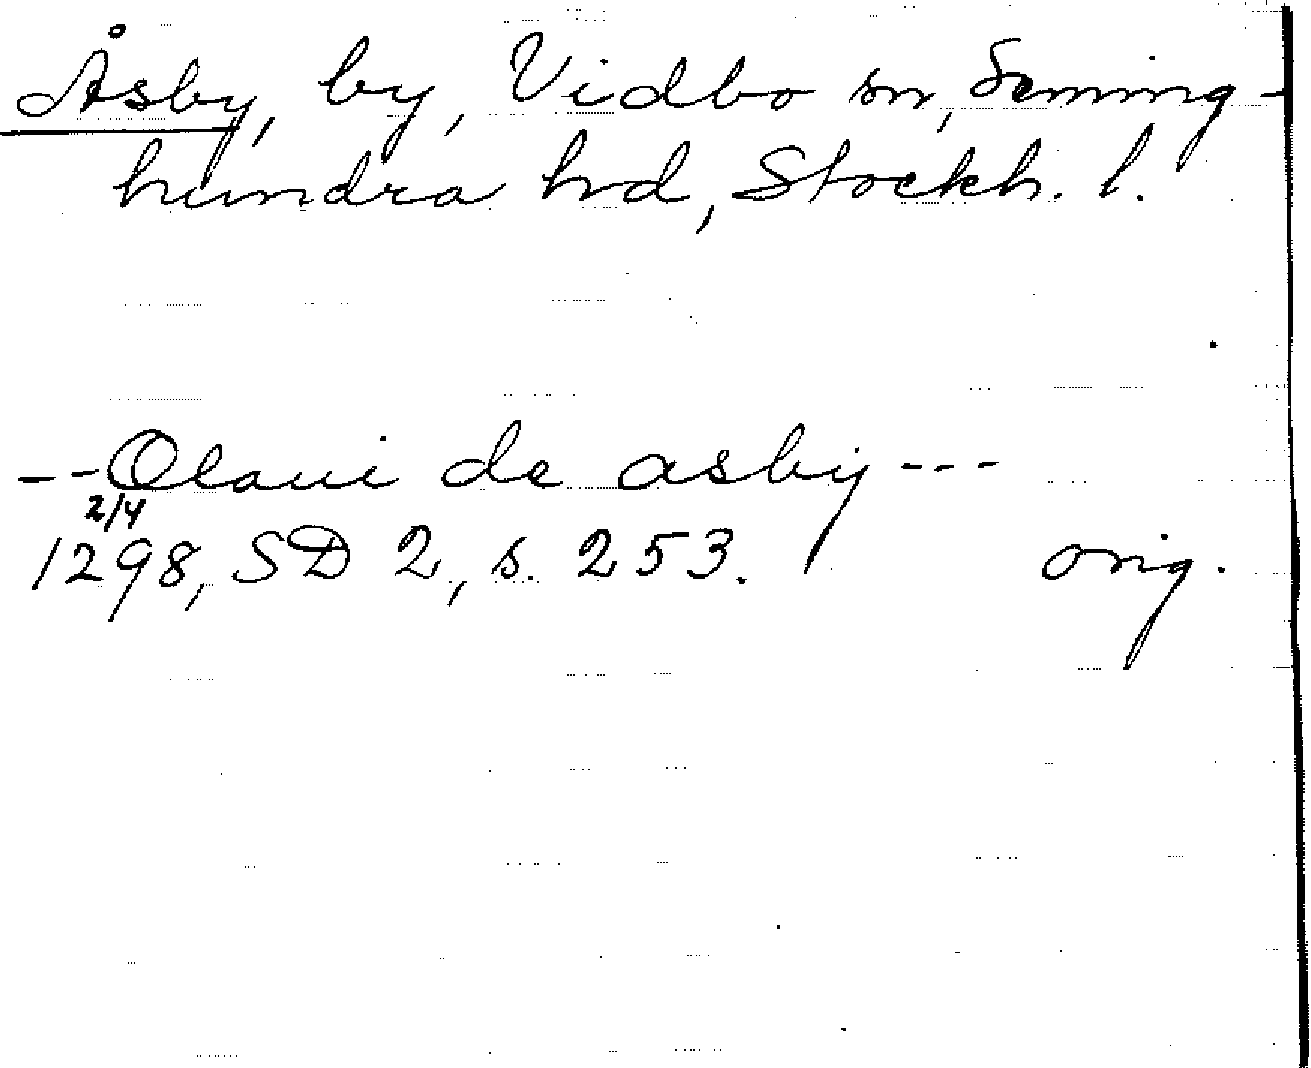 Åsby, by, Vidbo sn, Seming-
hundra hd, Stockh. l.
--Olaui de asby---
2/4
1298, SD 2, s. 253. orig.